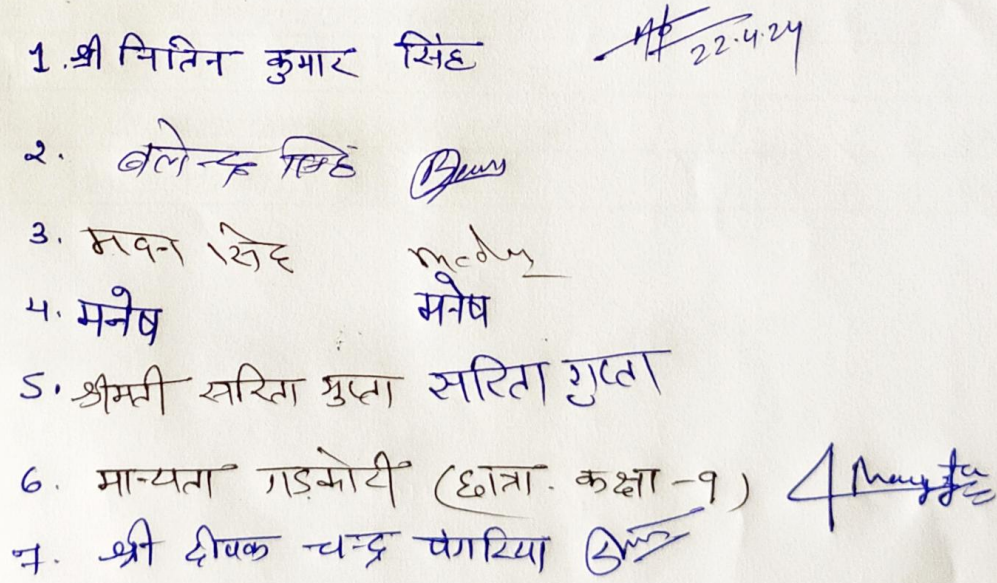 1. श्री नितिन कुमार सिंह 22.4.24
2. बलेन्द्र सिंह
3. मदन सिंह
4. मनेष मनेष
5. श्रीमती सरिता गुप्ता सरिता गुप्ता
6. मान्यता गड़कोटी (छात्रा. कक्षा -9)
7. श्री दीपक चन्द्र पंगरिया